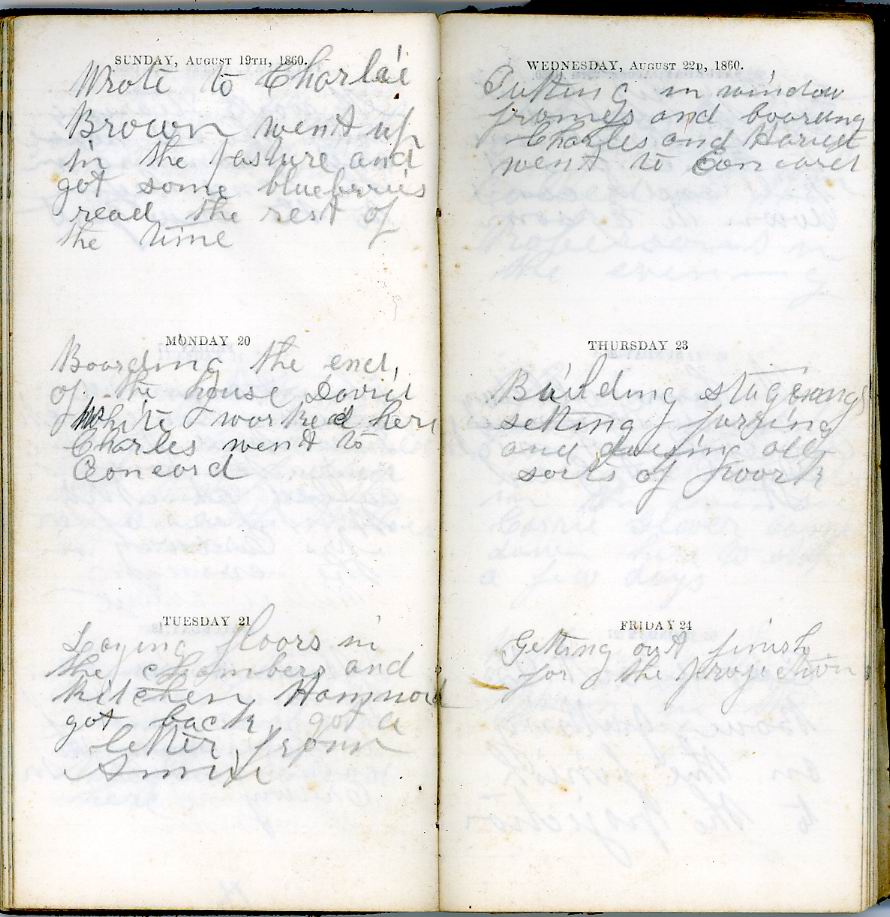 SUNDAY, AUGUST 19TH, 1860.
Wrote to Charlie
Brown went up
in the pasture and
got some blueberries
read the rest of
the time
MONDAY 20
Boarding the end,
of the house David
White worked here
Charles went to
Concord
TUESDAY 21
Laying floors in
the chambers and
kitchen Hammond
got back, got a
letter from
Annie
WEDNESDAY, AUGUST 22D, 1860.
Putting in window
frames and boarding
Charles and Hariet
went to Concord
THURSDAY 23
Building stageings
setting furring
and dooing all
sorts of work
FRIDAY 24
Getting out finish
for the projection